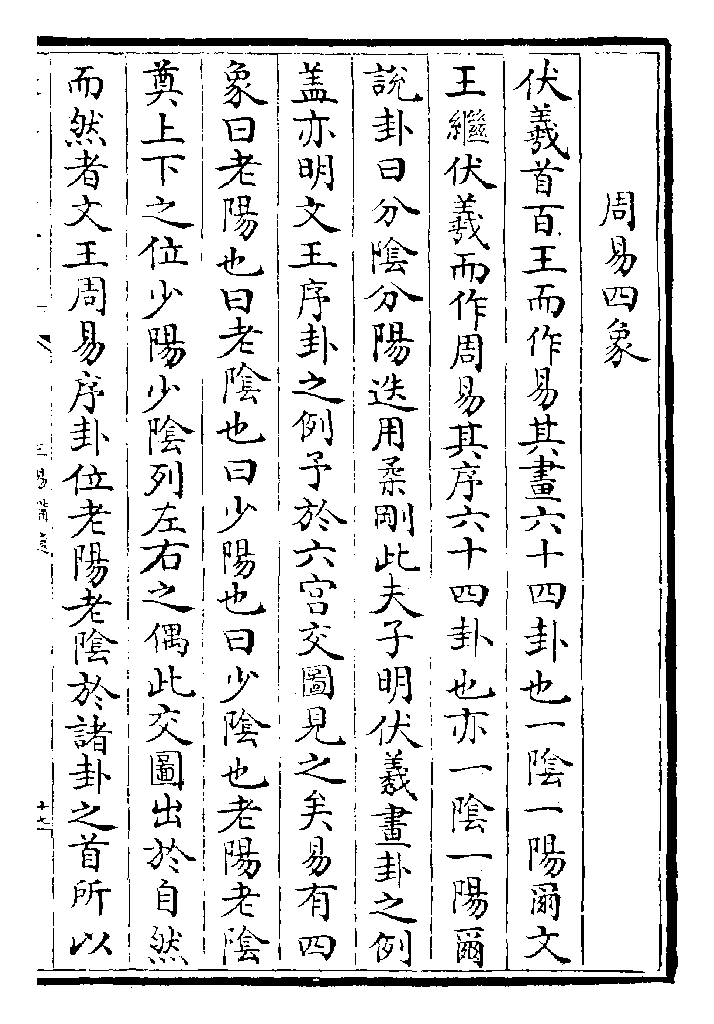 周易四象
伏羲首百王而作易其畫六十四卦也一陰一陽爾文
王繼伏羲而作周易其序六十四卦也亦一陰一陽爾
說卦曰分陰分陽迭用柔剛此夫子明伏羲畫卦之例
盖亦明文王序卦之例予於六宫交圖見之矣易有四
象曰老陽也曰老陰也曰少陽也曰少陰也老陽老陰
奠上下之位少陽少陰列左右之偶此交圖出於自然
而然者文王周易序卦位老陽老陰於諸卦之首所以